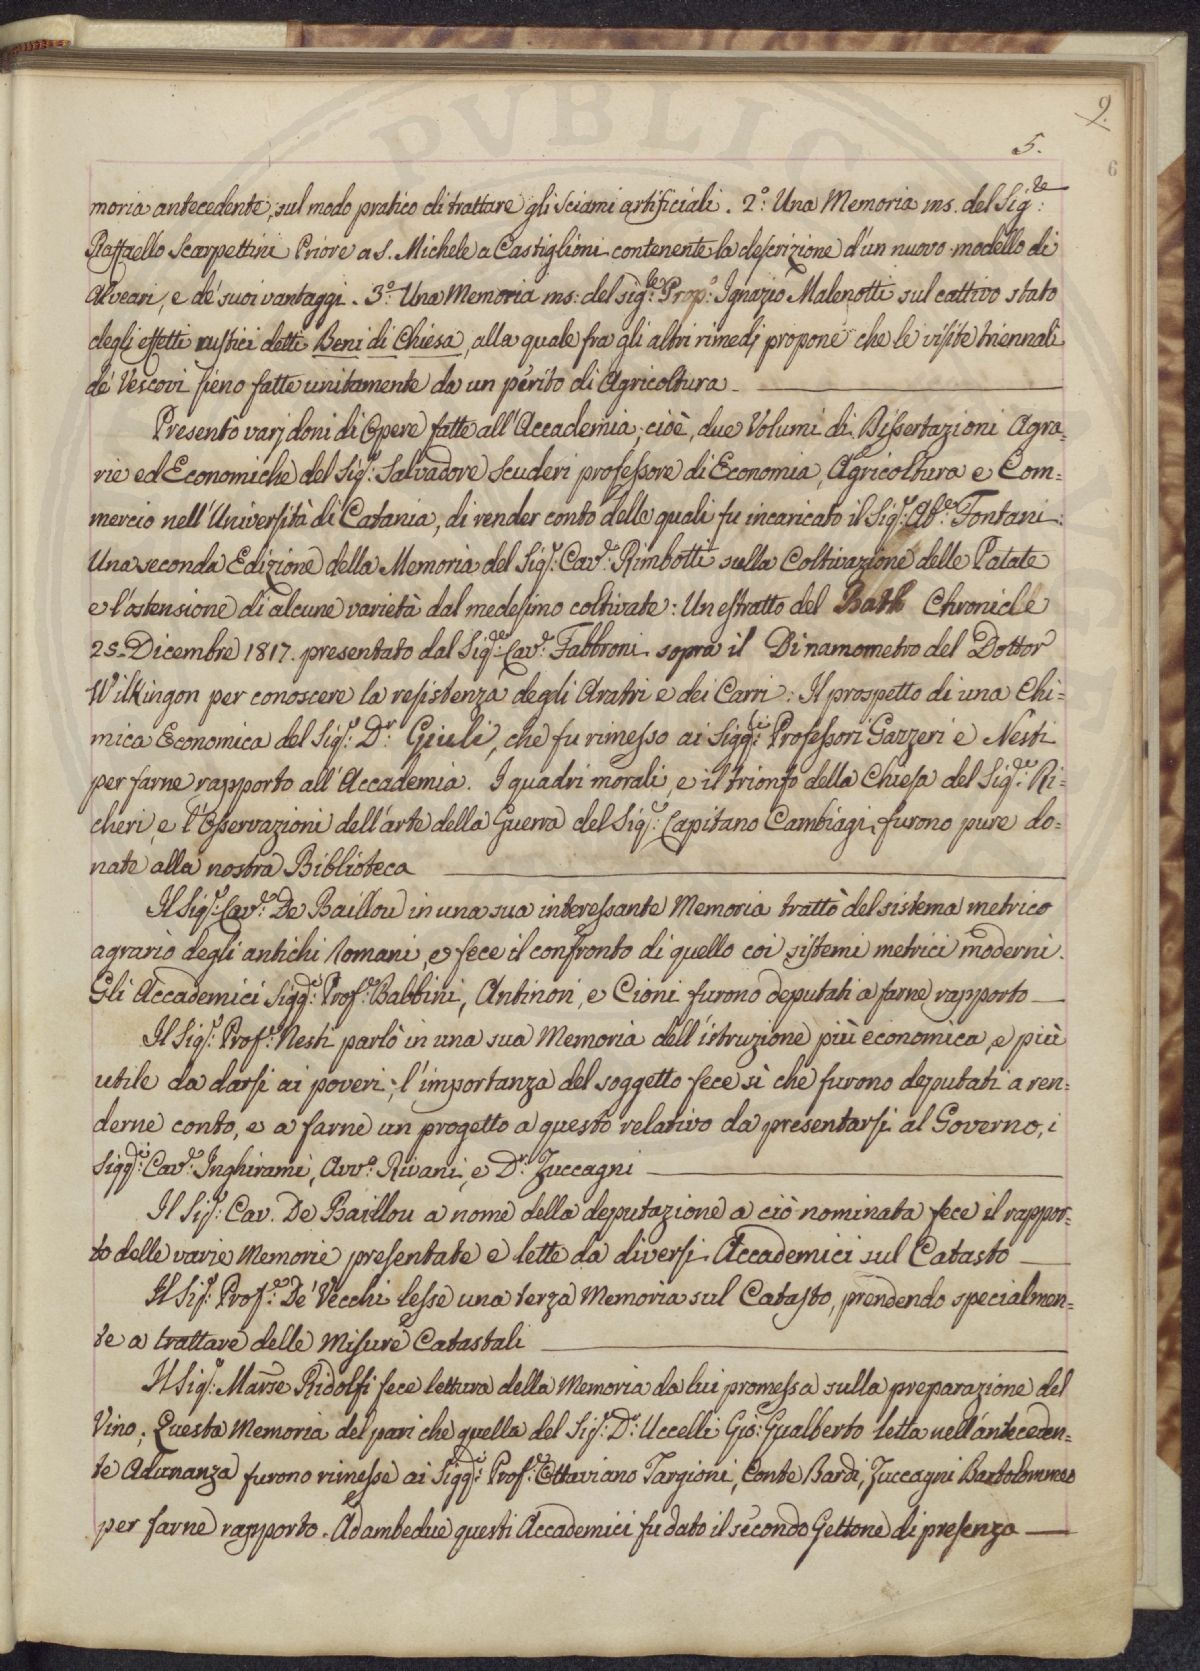 PVBLIC
9.
5.
6
moria antecedente, sul modo pratico di trattare gli sciami artificiali. 2.° Una Memoria ms. del Sig.re
Raffaello Scarpettini Priore a S. Michele a Castiglioni contenente la descrizione d'un nuovo modello di
Alveari, e de' suoi vantaggi. 3.° Una Memoria ms: del sig.re Prop.° Ignazio Malenotti sul cattivo stato
degli effetti rustici detti Beni di Chiesa, alla quale fra gli altri rimedj propone che le visite triennali
de' Vescovi sieno fatte unitamente da un perito di Agricoltura.
Presentò varj doni di Opere fatte all'Accademia, cioè, due Volumi di Dissertazioni Agra=
rie ed Economiche del Sig.r Salvadore Scuderi professore di Economia, Agricoltura e Com=
mercio nell'Università di Catania, di render conto delle quali fu incaricato il Sig.r Ab.e Fontani:
Una seconda Edizione della Memoria del Sig.r Cav.e Rimbotti sulla Coltivazione delle Patate
e l'ostensione di alcune varietà dal medesimo coltivate: Un estratto del Bath Chronicle
25. Dicembre 1817. presentato dal Sig.re Cav.e Fabbroni sopra il Dinamometro del Dottor
Wilkingon per conoscere la resistenza degli Aratri e dei Carri: Il prospetto di una Chi=
mica Economica del Sig.r D.r Giuli, che fu rimesso ai Sigg.ri Professori Gazzeri e Nesti
per farne rapporto all'Accademia. I quadri morali, e il trionfo della Chiesa del Sig.re Ri=
cheri, e l'Osservazioni dell'arte della Guerra del Sig.r Capitano Cambiagi, furono pure do=
nate alla nostra Biblioteca
Il Sig.r Cav.e De Baillou in una sua interessante Memoria trattò del sistema metrico
agrario degli antichi Romani, e fece il confronto di quello coi sistemi metrici moderni.
Gli Accademici Sigg.i Prof.i Babbini, Antinori, e Cioni furono deputati a farne rapporto
Il Sig.r Prof.e Nesti parlò in una sua Memoria dell'istruzione più economica, e più
utile da darsi ai poveri; l'importanza del soggetto fece sì che furono deputati a ren=
derne conto, e a farne un progetto a questo relativo da presentarsi al Governo, i
Sigg.i Cav.e Inghirami, Avv.° Rivani, e D.r Zuccagni
Il Sig.r Cav. De Baillou a nome della deputazione a ciò nominata fece il rappor=
to delle varie Memorie presentate e lette da diversi Accademici sul Catasto
Il Sig.r Prof.e De' Vecchi lesse una terza Memoria sul Catasto, prendendo specialmen=
te a trattare delle Misure Catastali
Il Sig.r Marse Ridolfi fece lettura della Memoria da lui promessa sulla preparazione del
Vino; Questa Memoria del pari che quella del Sig.r D.r Uccelli Gio: Gualberto letta nell'anteceden=
te Adunanza furono rimesse ai Sigg.i Prof.e Ottaviano Targioni, Conte Bardi, Zuccagni Bartolommeo
per farne rapporto. Ad ambedue questi Accademici fu dato il secondo Gettone di presenza